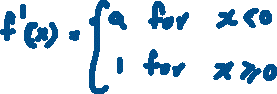 f'(x) = { a for x < 0
1 for x ≥ 0